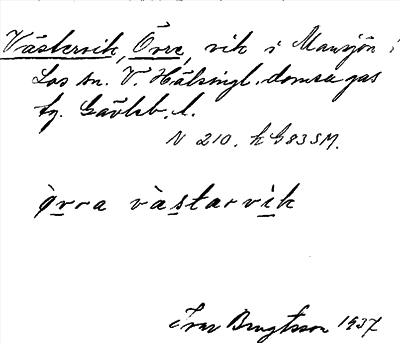 Västervik, Övre, vik i Mansjön i
Los sn. V. Hälsingl. domsagas
tg. Gävleb. l.
N 210. k G83SM.
òvra vàstarvik
Ivar Bengtsson 1937